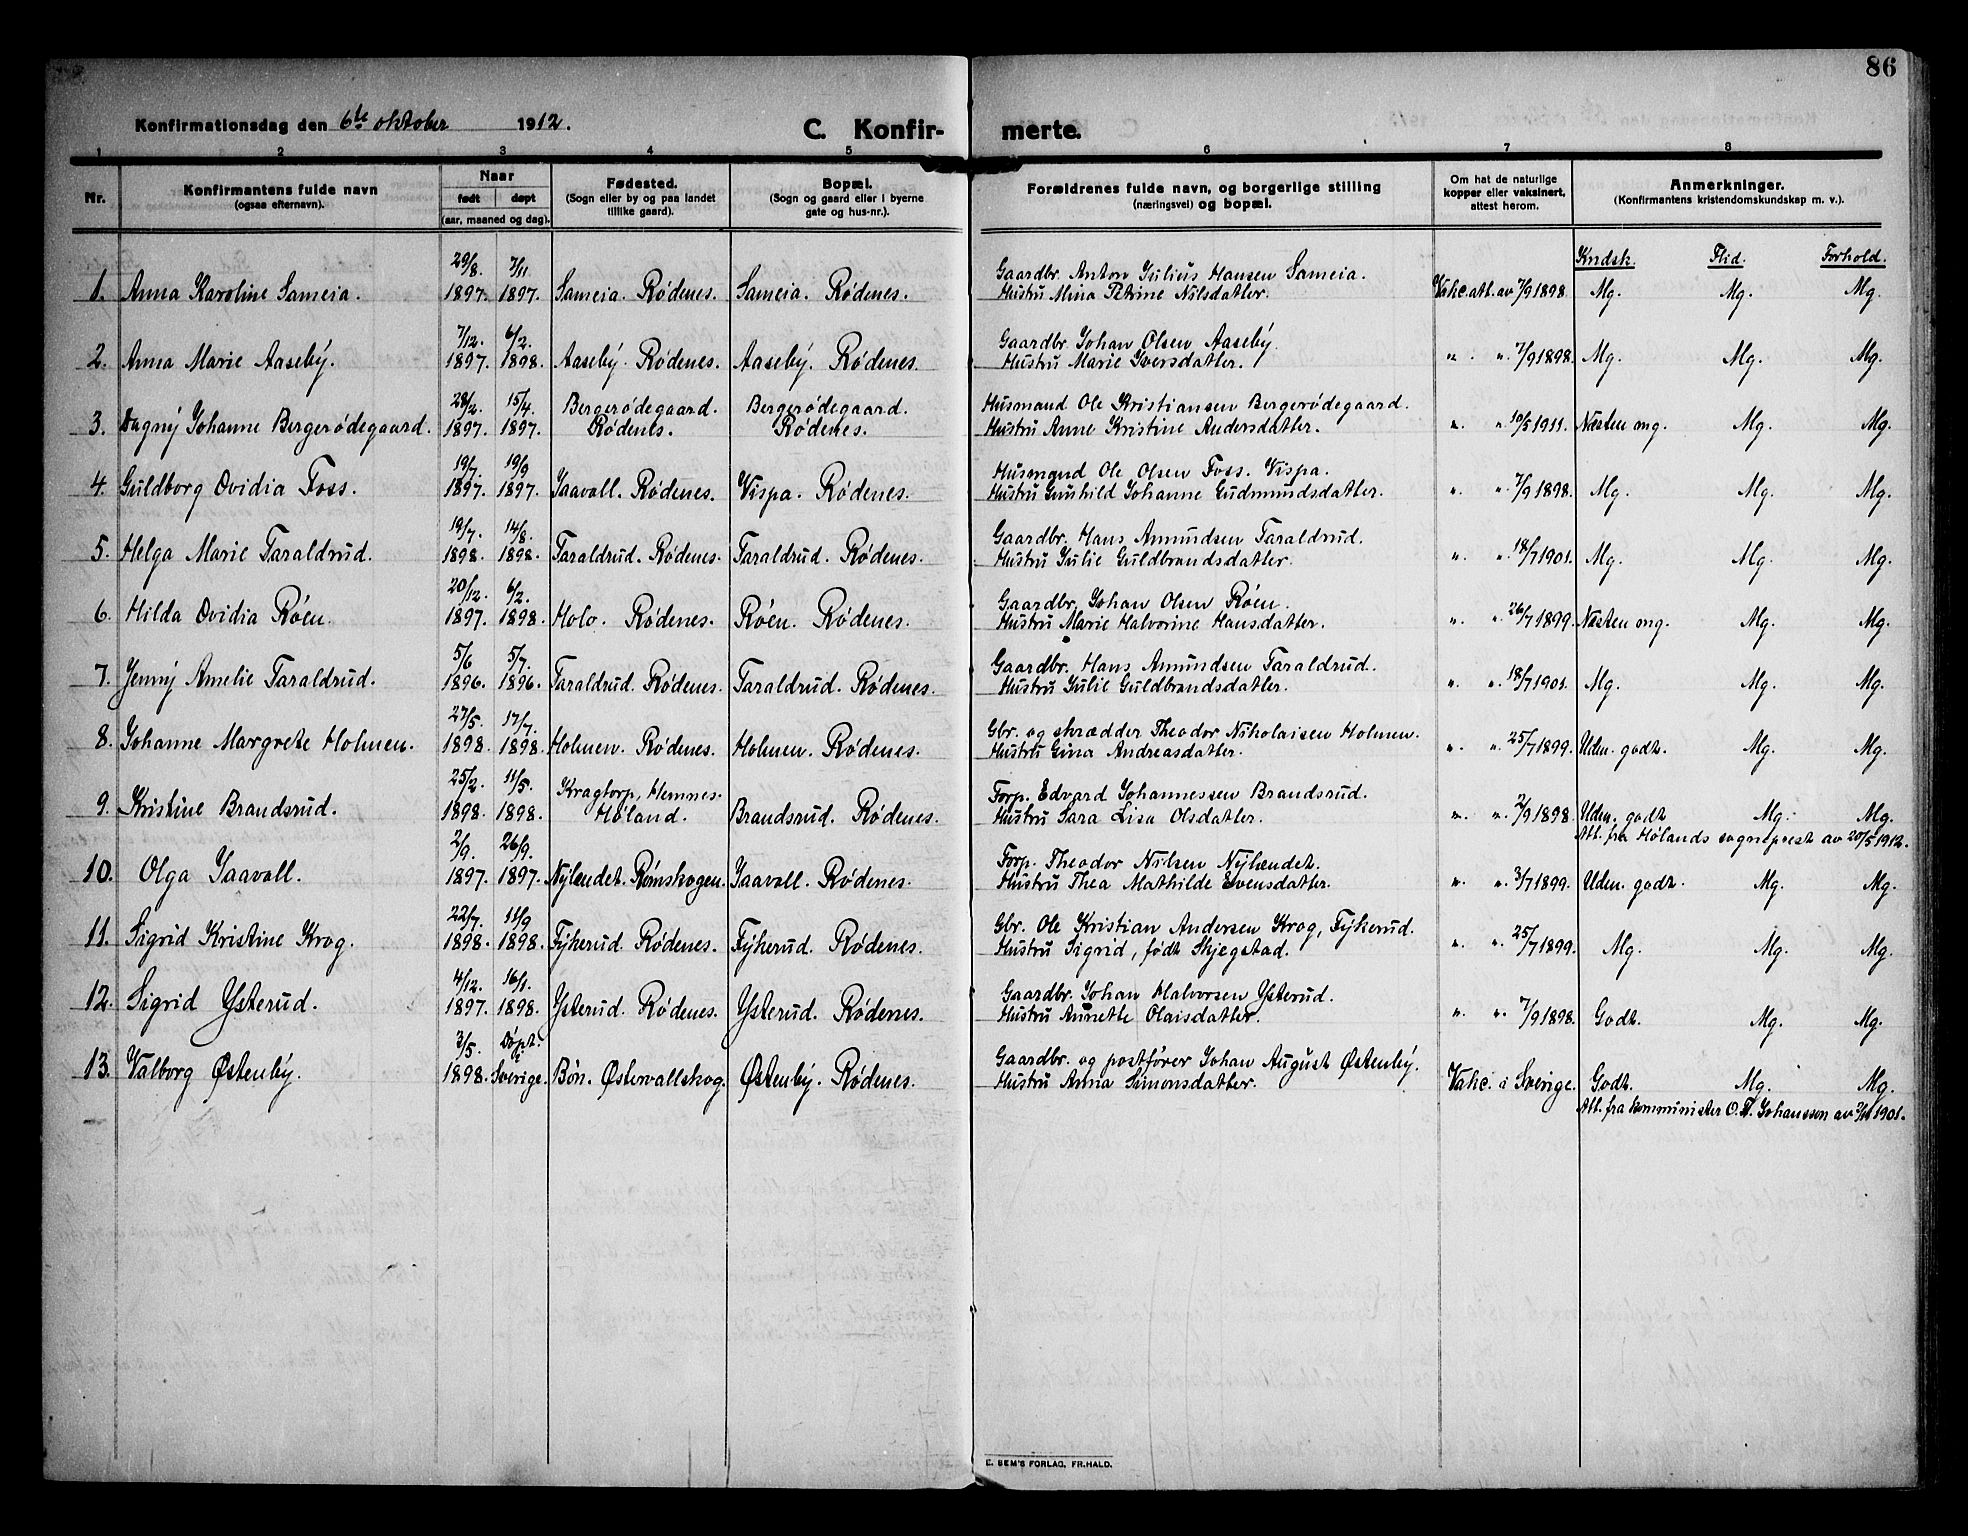 86
Konfirmationsdag den 6te oktober 1912.
C. Konfir-merte.
1 2 3 4 5 6 7 8
Nr.
Konfirmantens fulde navn
(ogsaa efternavn).
Naar
født døpt
(aar, maaned og dag).
Fødested.
(Sogn eller by og paa landet
tillike gaard).
Bopæl.
(Sogn og gaard eller i byerne
gate og hus-nr.).
Forældrenes fulde navn, og borgerlige stilling
(næringsvei) og bopæl.
Om hat de naturlige
kopper eller vaksinert,
attest herom.
Anmerkninger.
(Konfirmantens kristendomskundskap m. v.).
Kndsk. Flid. Forhold.
29/8. 7/11 Gaardbr. Anton Julius Hansen Sameia.
1. Anna Karoline Sameia. 1897. 1897. Sameia. Rødenes. Sameia. Rødenes. Hustru Mina Petrine Nilsdatter. Vakc.att. av 7/9 1898. Mg. Mg. Mg.
7/12. 6/2. Gaardbr. Johan Olsen Aaseby.
2. Anna Marie Aaseby. 1897. 1898. Aaseby. Rødenes. Aaseby. Rødenes. Hustru Marie Iversdatter. " " 7/9 1898. Mg. Mg. Mg.
28/2. 15/4. Bergerødegaard. Bergerødegaard. Husmand Ole Kristiansen Bergerødegaard.
3. Dagny Johanne Bergerødegaard. 1897. 1897. Rødenes. Rødenes. Hustru Anne Kristine Andersdatter. " " 10/5 1911. Næsten mg. Mg. Mg.
19/7. 19/9 Husmand Ole Olsen Foss. Vispa.
4. Guldborg Ovidia Foss. 1897. 1897. Jaavall. Rødenes. Vispa. Rødenes. Hustru Gunhild Johanne Gudmundsdatter. " " 7/9 1898. Mg. Mg. Mg.
19/7. 14/8. Gaardbr. Hans Amundsen Taraldrud.
5. Helga Marie Taraldrud. 1898. 1898. Taraldrud. Rødenes. Taraldrud. Rødenes. Hustru Julie Guldbrandsdatter. " " 18/7 1901. Mg. Mg. Mg.
20/12. 6/2. Gaardbr. Johan Olsen Røen.
6. Hilda Ovidia Røen. 1897. 1898. Holo. Rødenes. Røen. Rødenes. Hustru Marie Halvorine Hansdatter. " " 26/7 1899. Næsten mg. Mg. Mg.
5/6 5/7. Gaardbr. Hans Amundsen Taraldrud.
7. Jenny Amelie Taraldrud. 1896. 1896. Taraldrud. Rødenes. Taraldrud. Rødenes. Hustru Julie Guldbrandsdatter. " " 18/7 1901. Mg. Mg. Mg.
27/5. 17/7. Gbr. og skrædder Theodor Nikolaisen Holmen.
8. Johanne Margrete Holmen. 1898. 1898. Holmen. Rødenes. Holmen. Rødenes. Hustru Gina Andreasdatter. " " 25/7 1899. Uden. godt. Mg. Mg.
25/2. 11/5. Kragtorp, Hemnes- Forp. Edvard Johannessen Brandsrud.
9. Kristine Brandsrud. 1898. 1898. Høland. Brandsrud. Rødenes. Hustru Sara Lisa Olsdatter. " " 2/9 1898. Uden. godt Mg. Mg.
Att. fra Hølands sogneprest av 20/5 1912.
2/9. 26/9. Forp. Theodor Nilsen Nylændet.
10. Olga Jaavall. 1897. 1897. Nylændet. Rømskogen. Jaavall. Rødenes. Hustru Thea Mathilde Evensdatter. " " 3/7 1899. Uden. godt. Mg. Mg.
22/7. 11/9 Gbr. Ole Kristian Andersen Krog, Fykerud.
11. Sigrid Kristine Krog. 1898. 1898. Fykerud. Rødenes. Fykerud. Rødenes. Hustru Sigrid, født Skjegstad. " " 25/7 1899. Mg. Mg. Mg.
4/12. 16/1. Gaardbr. Johan Halvorsen Ysterud.
12. Sigrid Ysterud. 1897. 1898. Ysterud. Rødenes. Ysterud. Rødenes. Hustru Annette Olaisdatter. " " 7/9 1898. Godt. Mg. Mg.
3/5. Døpt i Gaardbr. og postfører Johan August Østenby.
13. Valborg Østenby. 1898. Sverige. Bøn. Østervallskog. Østenby. Rødenes. Hustru Anna Simonsdatter. Vakc. i Sverige. Godt. Mg. Mg.
Att. fra komminister O. F. Johansson av 1901.
E. SEM'S FORLAG, FR.HALD.